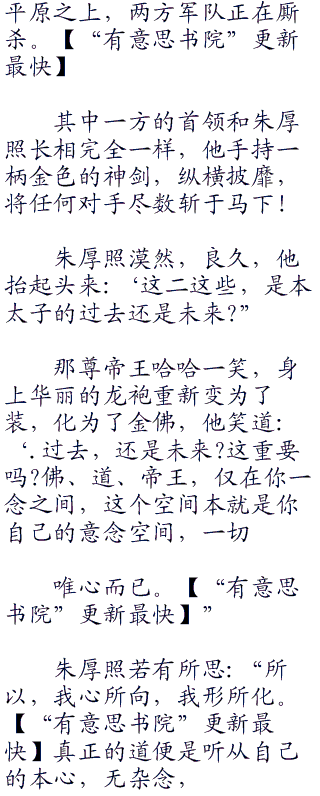 平原之上，两方军队正在厮
杀。【“有意思书院”更新
最快】
其中一方的首领和朱厚
照长相完全一样，他手持一
柄金色的神剑，纵横披靡，
将任何对手尽数斩于马下！
朱厚照漠然，良久，他
抬起头来：‘这二这些，是本
太子的过去还是未来?”
那尊帝王哈哈一笑，身
上华丽的龙袍重新变为了
装，化为了金佛，他笑道：
‘.过去，还是未来?这重要
吗?佛、道、帝王，仅在你一
念之间，这个空间本就是你
自己的意念空间，一切
唯心而已。【“有意思
书院”更新最快】”
朱厚照若有所思：“所
以，我心所向，我形所化。
【“有意思书院”更新最
快】真正的道便是听从自己
的本心，无杂念，